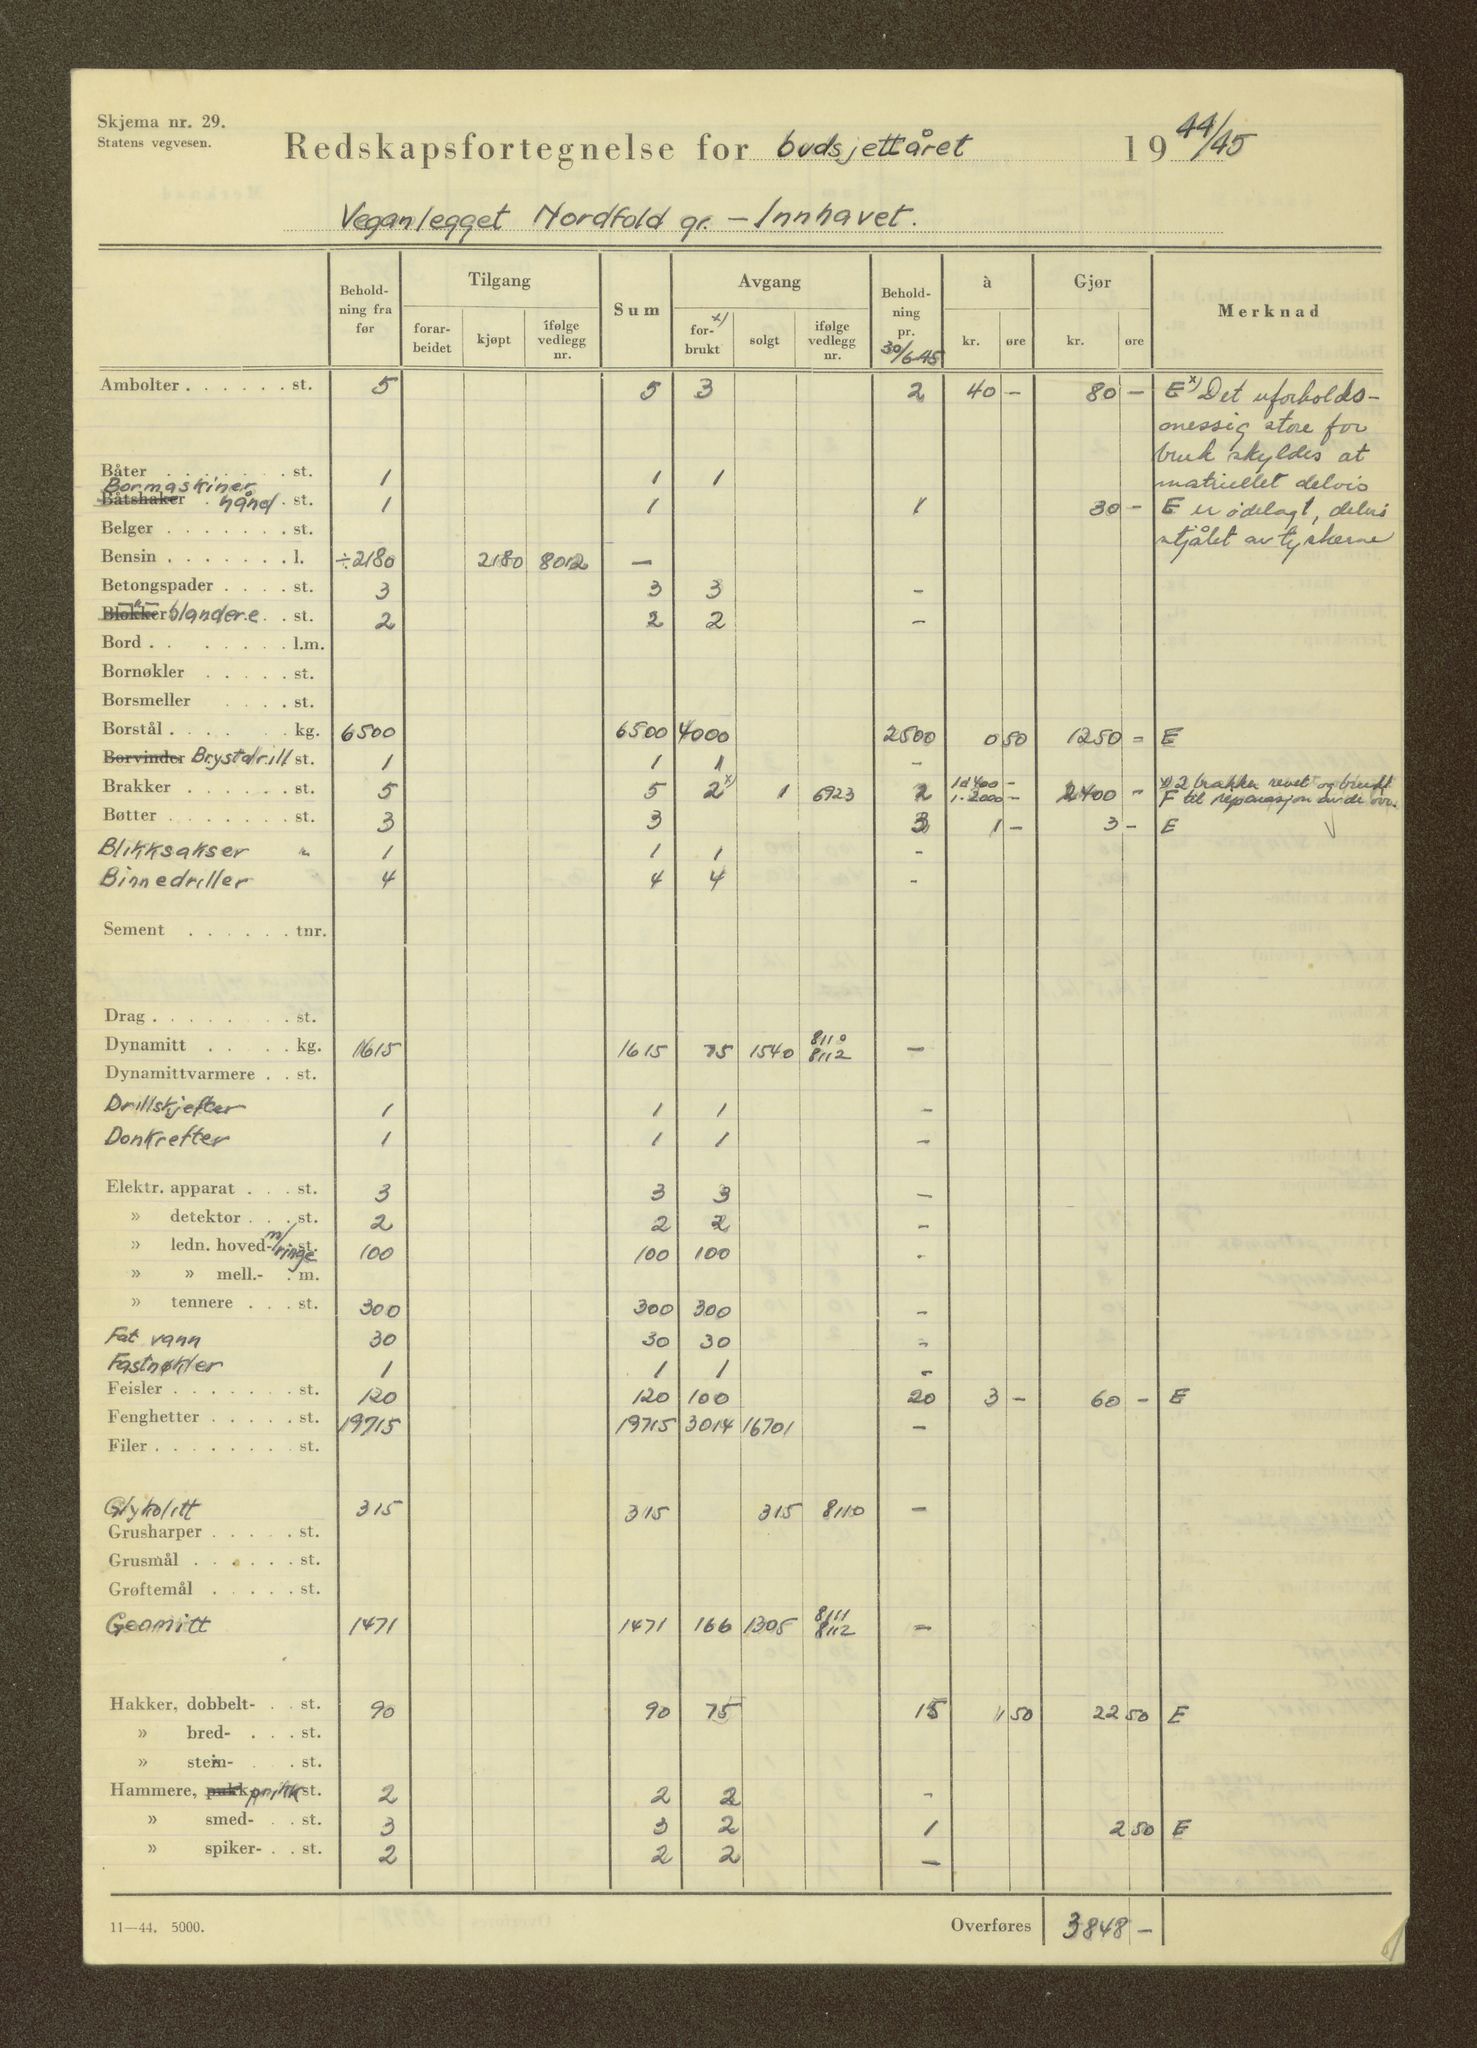 Skjema nr. 29.
Statens vegvesen.
Redskapsfortegnelse for budsjettåret 19 44/45
Veganlegget Nordfold gr. – Innhavet.
Beholdning fra før | Tilgang: forarbeidet | kjøpt | ifølge vedlegg nr. | Sum | Avgang: forbrukt x) | solgt | ifølge vedlegg nr. | Beholdning pr. 30/6 45 | à kr. | øre | Gjør kr. | øre | Merknad
Ambolter . . . . . . st. 5 5 3 2 40 – 80 – E x) Det uforholds-
messig store for
bruk skyldes at
Båter . . . . . . . st. 1 1 1 matriellet delvis
Bormaskiner
Båtshaker . hånd . st. 1 1 1 30 – E er ødelagt, delvis
Belger . . . . . . . st. stjålet av tyskerne
Bensin . . . . . . . l. ÷2180 2180 8012 —
Betongspader . . . . st. 3 3 3 -
Blokker " blandere . . st. 2 2 2 -
Bord . . . . . . . l.m.
Bornøkler . . . . . st.
Borsmeller . . . . st.
Borstål . . . . . . kg. 6500 6500 4000 2500 0 50 1250 = E
Borvinder Brystdrill st. 1 1 1 -
Brakker . . . . . . st. 5 5 2 x) 1 6923 2 1 à 400 – 1 - 2000 – 2400 - x) 2 brakker revet og brukt
F til reparasjon av de
Bøtter . . . . . . . st. 3 3 3 1 – 3 – E
Blikksakser " 1 1 1 -
Binnedriller 4 4 4 -
Sement . . . . . . tnr.
Drag . . . . . . . . st.
Dynamitt . . . . . kg. 1615 1615 75 1540 8110 8112 —
Dynamittvarmere . . st.
Drillskjefter 1 1 1 -
Donkrefter 1 1 1 -
Elektr. apparat . . . st. 3 3 3 -
» detektor . . . st. 2 2 2 -
» ledn. hoved- m/ringe st. 100 100 100 -
» » mell.- . m.
» tennere . . . st. 300 300 300 -
Fat vann 30 30 30 -
Fastnøkler 1 1 1 -
Feisler . . . . . . . st. 120 120 100 20 3 – 60 – E
Fenghetter . . . . . st. 19715 19715 3014 16701 —
Filer . . . . . . . . st.
Glykolitt 315 315 315 8110 —
Grusharper . . . . . st.
Grusmål . . . . . . st.
Grøftemål . . . . . st.
Geomitt 1471 1471 166 1305 8111 8112 —
Hakker, dobbelt- . . st. 90 90 75 15 1 50 22 50 E
» bred- . . . st.
» stein- . . st.
Hammere, pukk prikk st. 2 2 2 -
» smed- . . st. 3 3 2 1 2 50 E
» spiker- . . st. 2 2 2 —
11—44. 5000. Overføres 3848 –